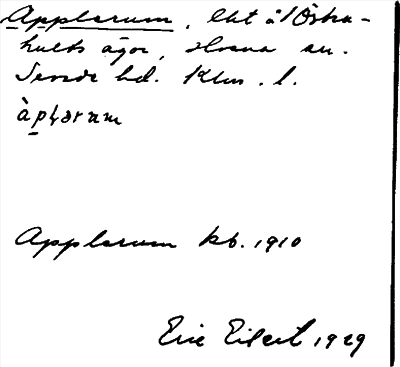 Applarum, lht å Östra-
hults ägor, Hossna sn.
Sevede hd. Klm. l.
àpḷarum
Applarum kb. 1910
Eric Elgert 1929